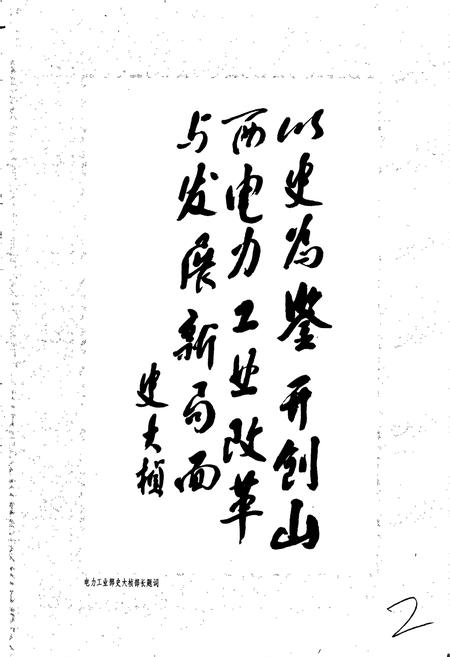 以史为鉴开创山
西电力工业改革
与发展新局面
史大桢
电力工业部史大桢部长题词
2